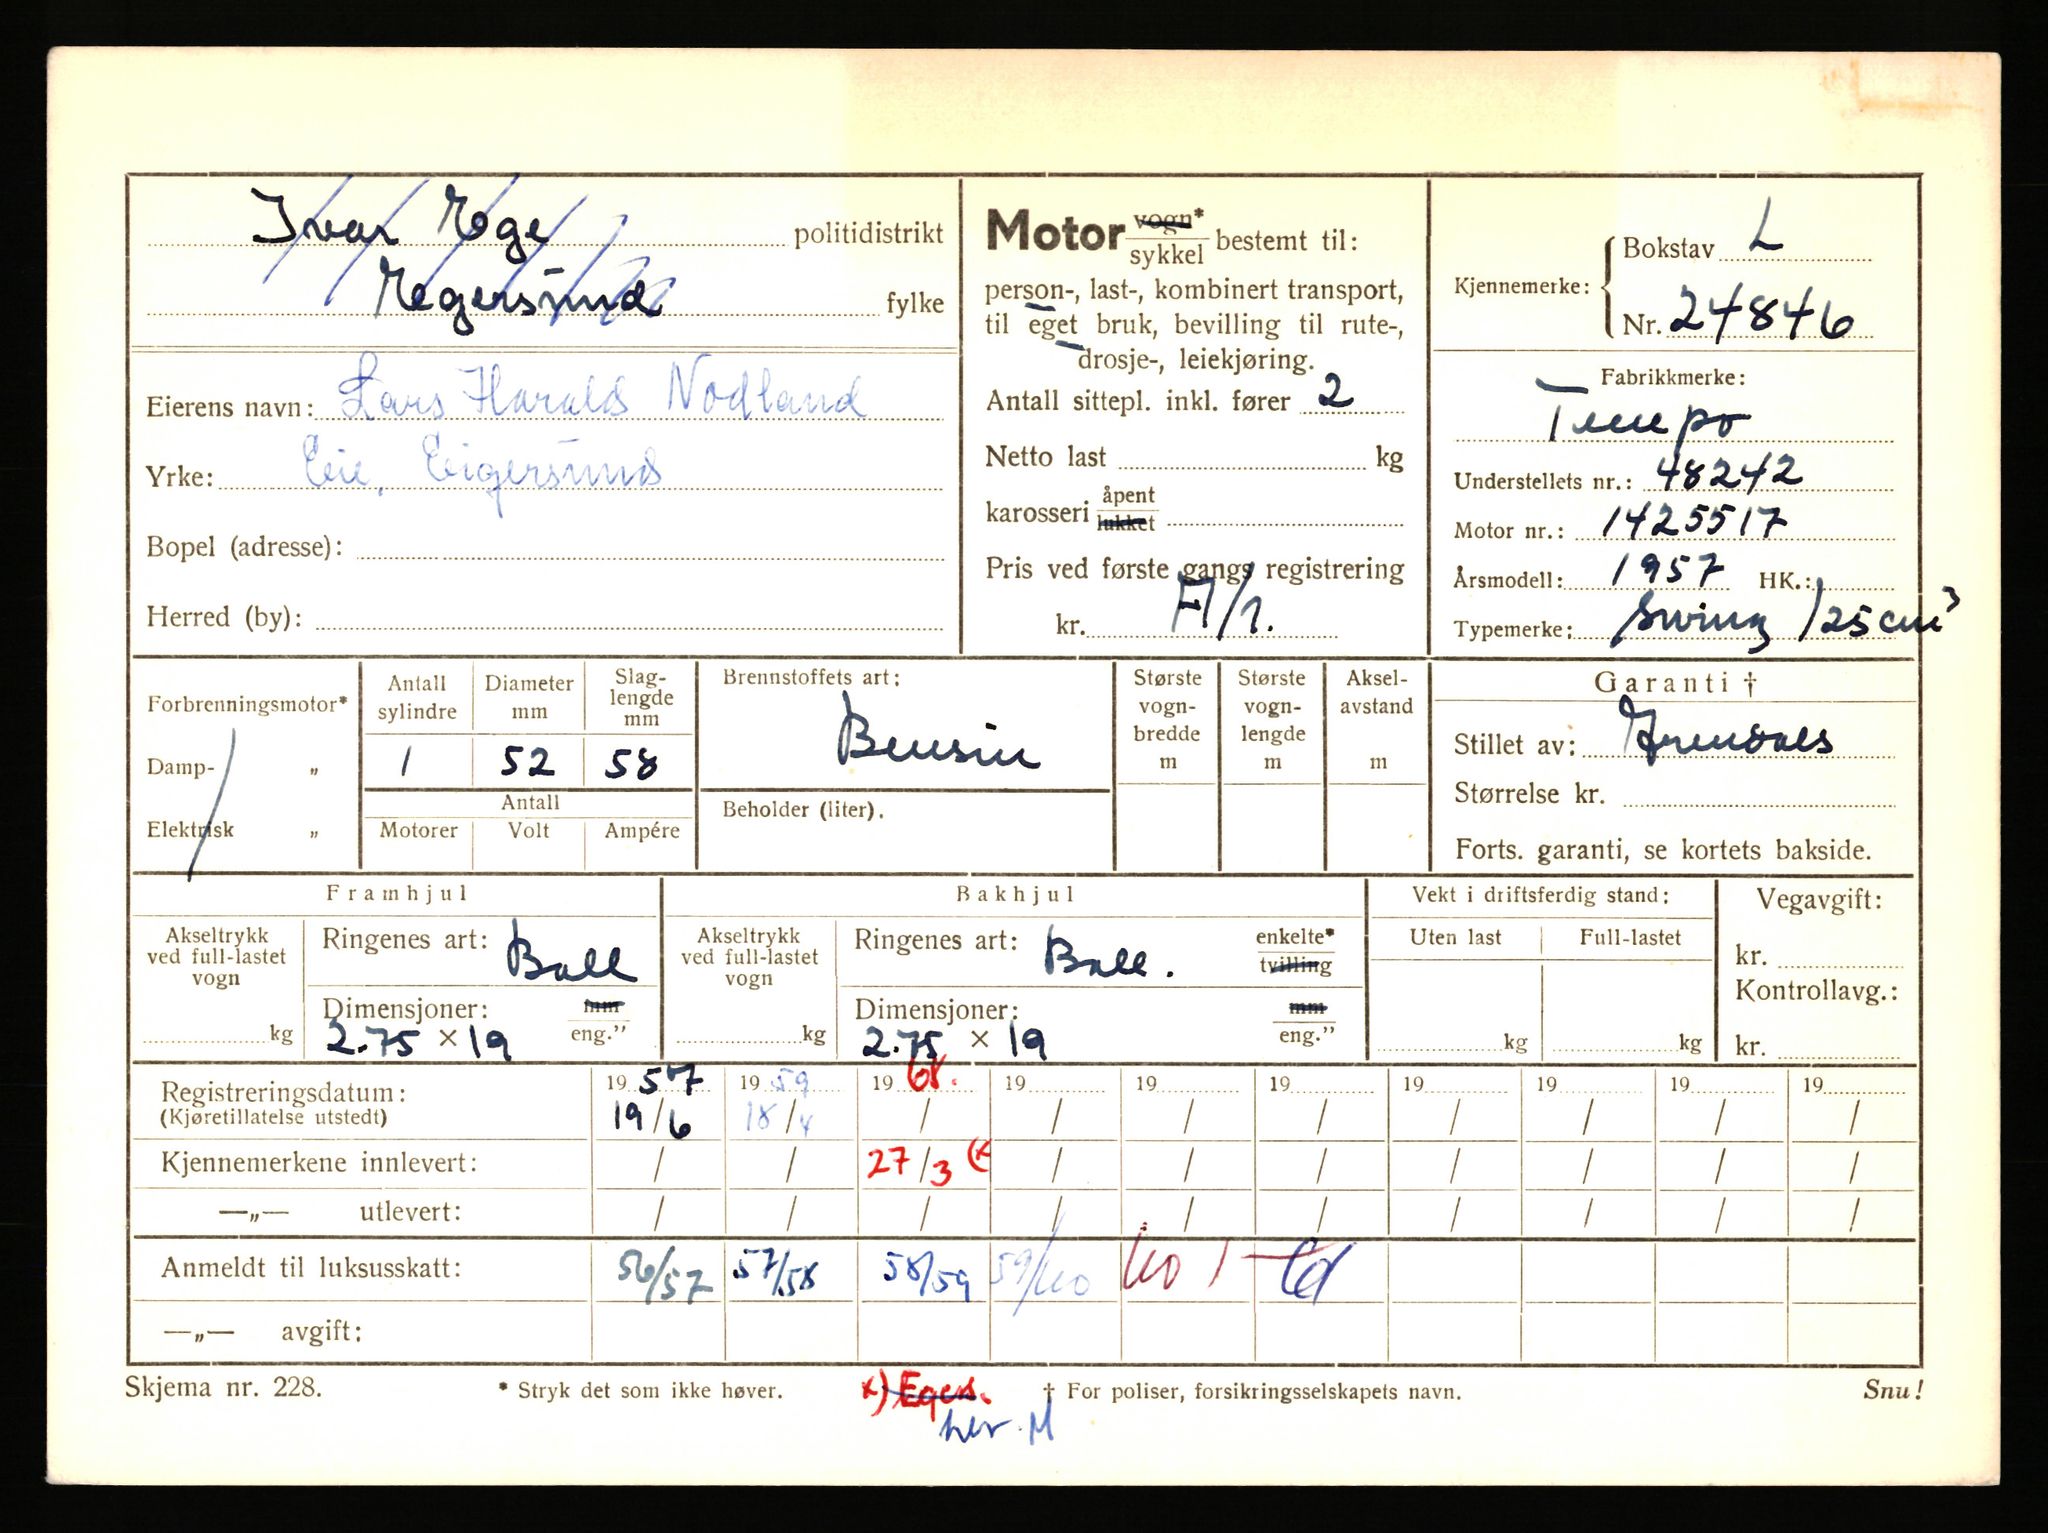 Ivar Ege politidistrikt
Egersund fylke
Eierens navn: Lars Harald Nodland
Yrke: Eie, Eigersund
Bopel (adresse):
Herred (by):
Motor vogn* sykkel bestemt til:
person-, last-, kombinert transport,
til eget bruk, bevilling til rute-,
drosje-, leiekjøring.
Antall sittepl. inkl. fører 2
Netto last kg
karosseri åpent lukket
Pris ved første gangs registrering
kr. A/1.
Kjennemerke: Bokstav L
Nr. 24846
Fabrikkmerke:
Tempo
Understellets nr.: 48242
Motor nr.: 1425517
Årsmodell: 1957 HK.:
Typemerke: Swing 125 cm³
Forbrenningsmotor*
Damp- „
Elektrisk „
Antall sylindre Diameter mm Slag-lengde mm
1 52 58
Antall
Motorer Volt Ampére
Brennstoffets art:
Bensin
Beholder (liter).
Største vogn-bredde m
Største vogn-lengde m
Aksel-avstand m
Garanti †
Stillet av: Arendals
Størrelse kr.
Forts. garanti, se kortets bakside.
Framhjul
Akseltrykk ved full-lastet vogn kg
Ringenes art: Ball
Dimensjoner: mm eng.”
2.75 × 19
Bakhjul
Akseltrykk ved full-lastet vogn kg
Ringenes art: Ball. enkelte* tvilling
Dimensjoner: mm eng.”
2.75 × 19
Vekt i driftsferdig stand:
Uten last Full-lastet
kg kg
Vegavgift:
kr.
Kontrollavg.:
kr.
Registreringsdatum: 19 57 19 59 19 68. 19 19 19 19 19 19 19
(Kjøretillatelse utstedt) 19/6 18/4 / / / / / / / /
Kjennemerkene innlevert: / / 27/3 (x / / / / / / /
—„— utlevert: / / / / / / / / / /
Anmeldt til luksusskatt: 56/57 57/58 58/59 59/60 60 1
—„— avgift:
Skjema nr. 228. * Stryk det som ikke høver. x) Egers. † For poliser, forsikringsselskapets navn. Snu!